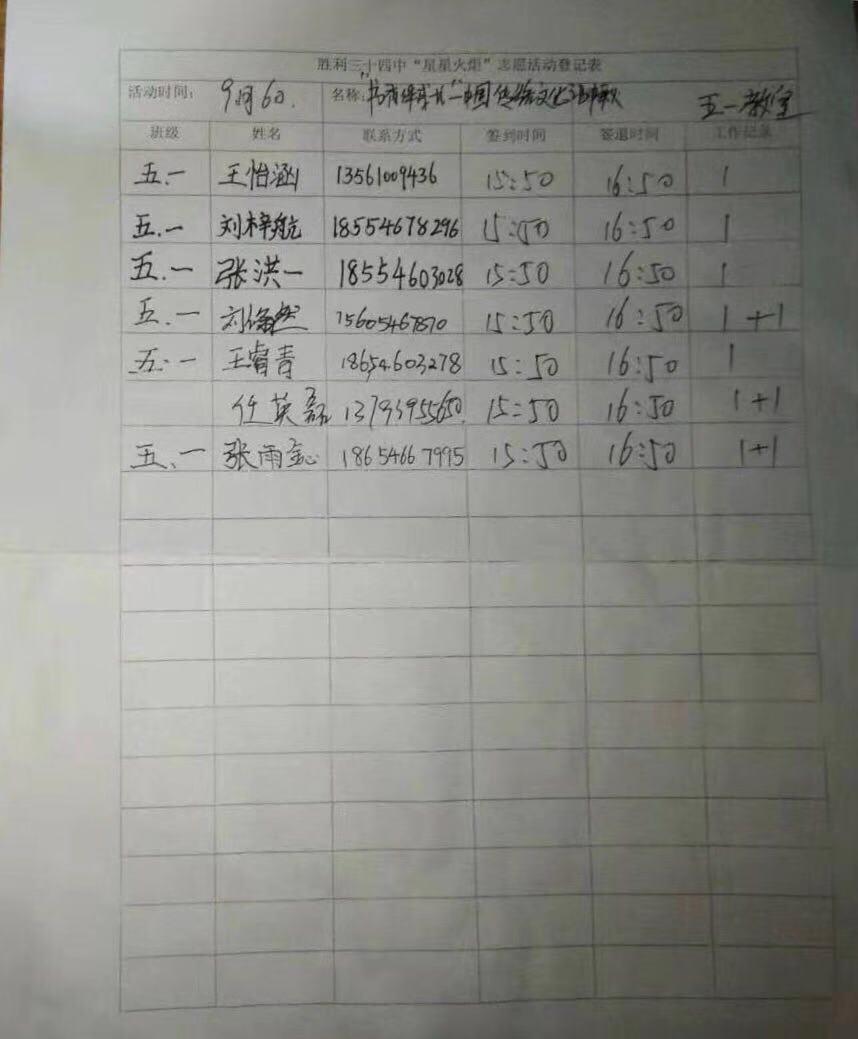 胜利三十四中“星星火炬”志愿活动登记表
活动时间: 9月6日. 名称: 中国传统文化 五一教室
班级 姓名 联系方式 签到时间 签退时间 工作记录
五.一 王怡涵 13561009436 15:50 16:50 1
五.一 刘梓航 18554678296 15:50 16:50 1
五.一 张洪一 18554603028 15:50 16:50 1
五.一 刘 15605467870 15:50 16:50 1+1
五.一 王睿青 18654603278 15:50 16:50 1
任英磊 15:50 16:50 1+1
五.一 张雨 18654667995 15:50 16:50 1+1